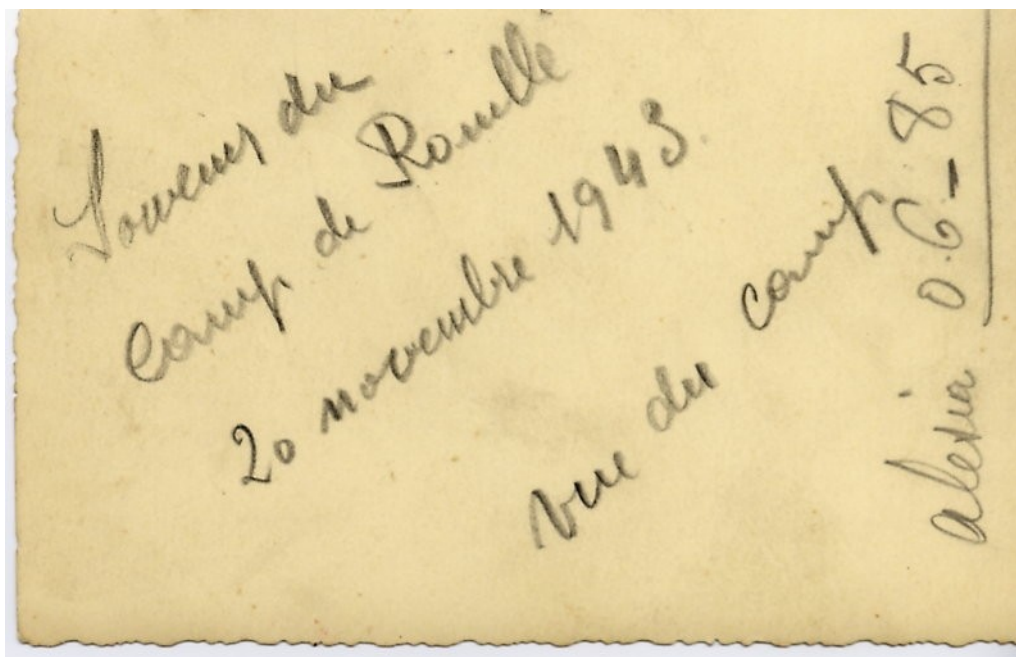 Souvenir du
Camp de Rouillé
20 novembre 1943
vue du camp
alexia 06-85